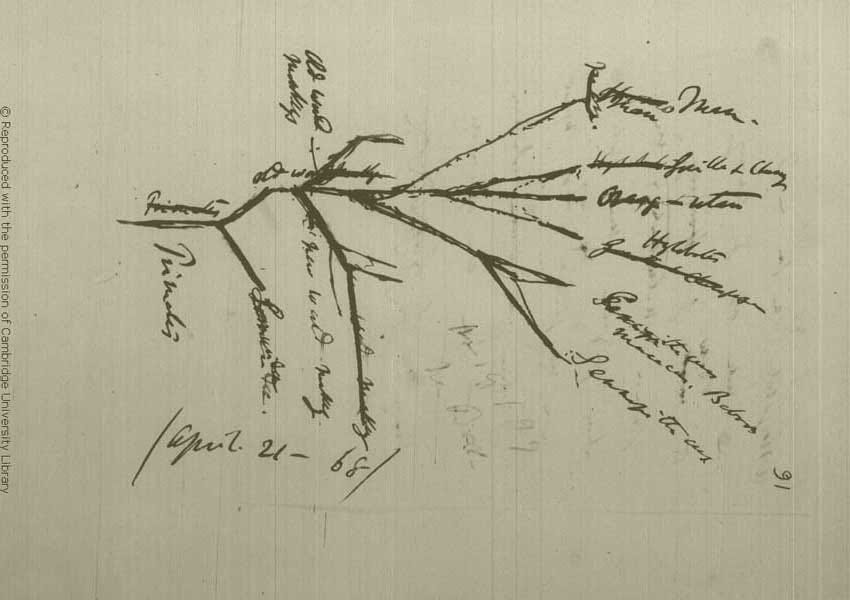 © Reproduced with the permission of Cambridge University Library
Old World
Monkeys
Man.
Gorilla & Chimp
Orang-utan
Hylobates
Cercopithecus
Macacus. Baboon
Semnopithecus
Old World
Primates
Primates
Lemuridae.
New World Monkey
New World Monkey
(April. 21 – 68)
91